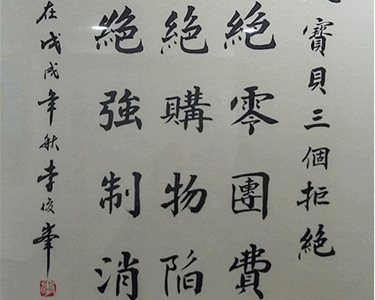 寶貝三個拒絶
絶零團費
絶購物陷
絶強制消
在戊戌年秋李俊峯